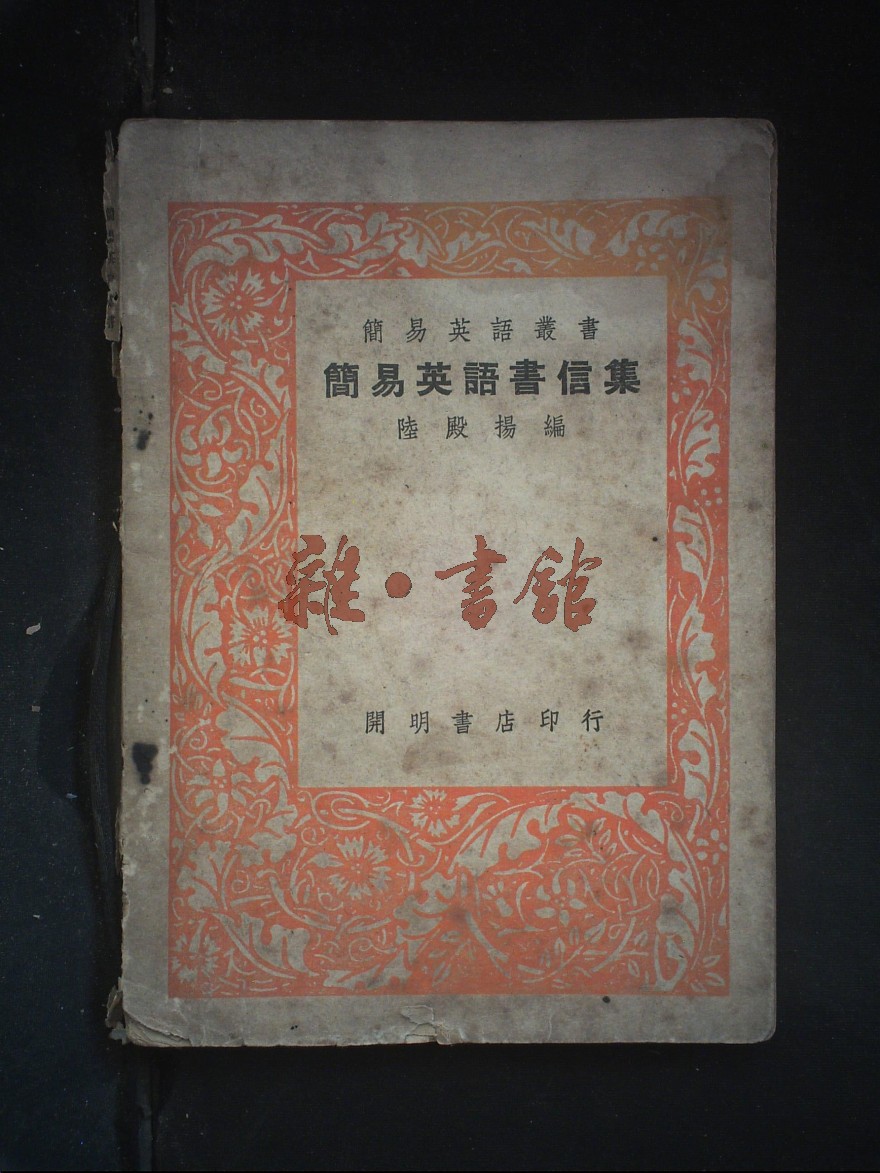 簡易英語叢書
簡易英語書信集
陸殿揚編
雜·書館
開明書店印行